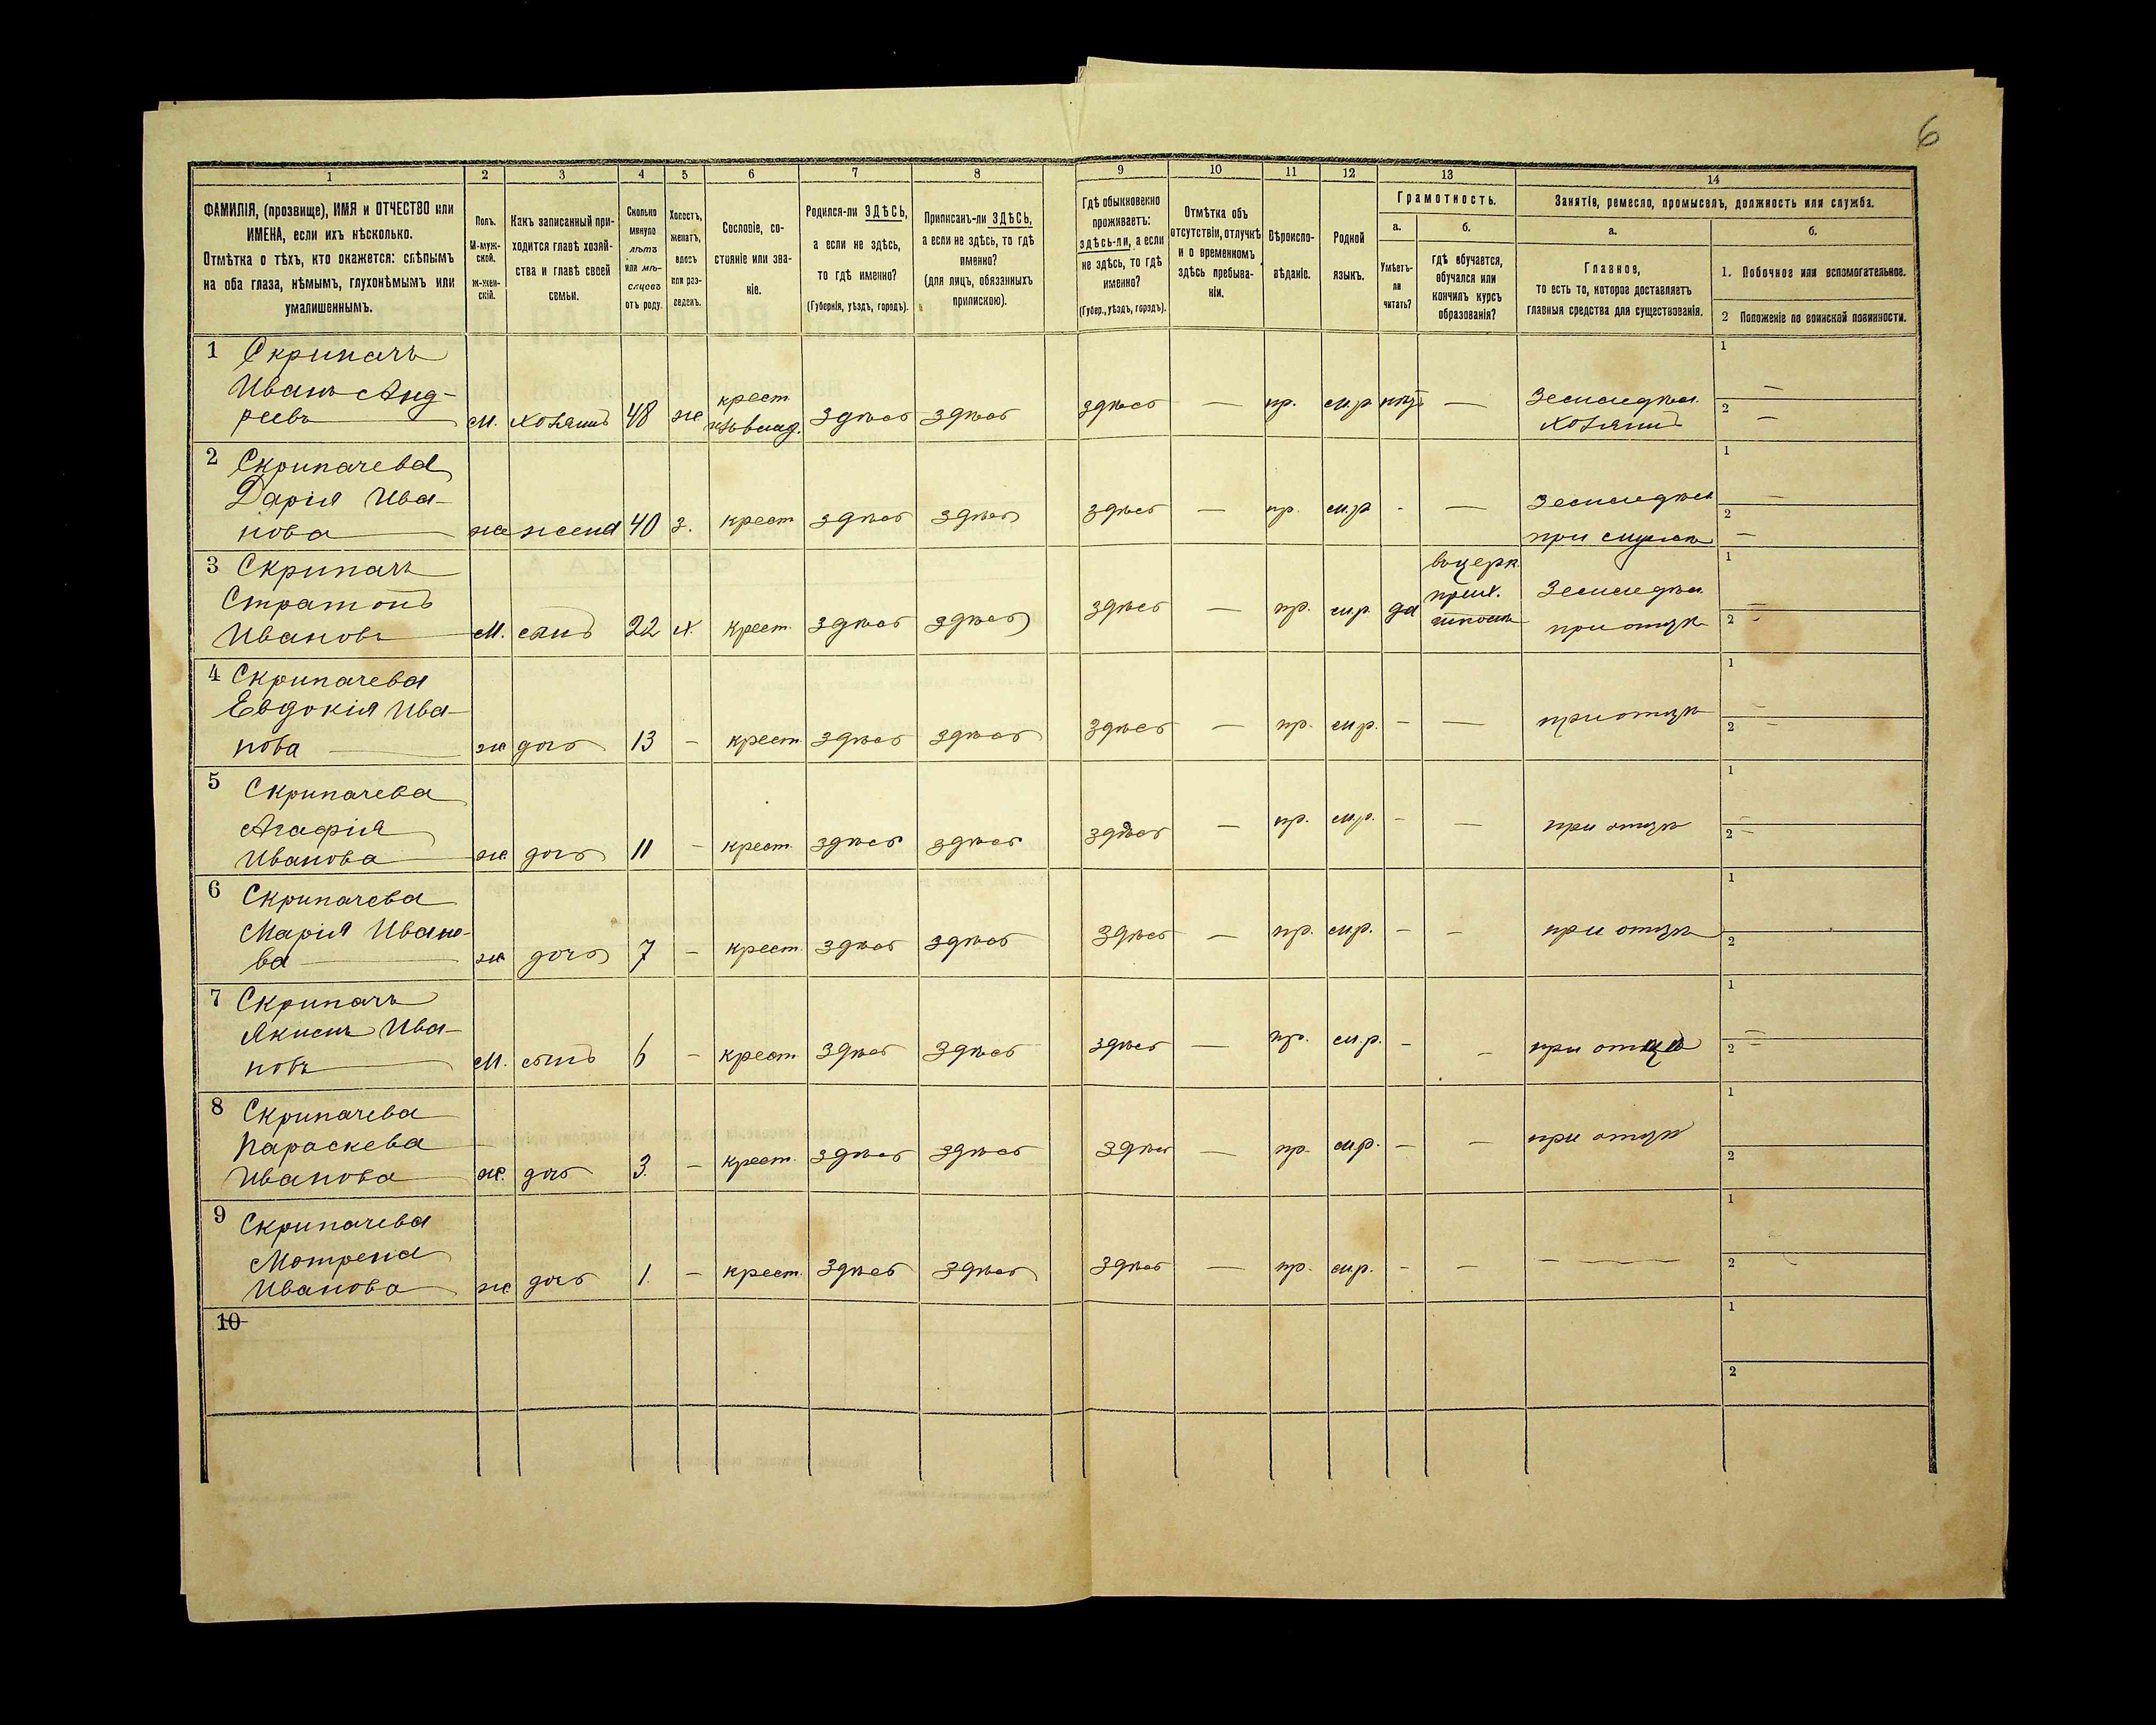 6
1 2 3 4 5 6 7 8 9 10 11 12 13 14
ФАМИЛІЯ, (прозвище), ИМЯ и ОТЧЕСТВО или
ИМЕНА, если ихъ нѣсколько.
Отмѣтка о тѣхъ, кто окажется: слѣпымъ
на оба глаза, нѣмымъ, глухонѣмымъ или
умалишеннымъ.
Полъ.
М-муж-
ской.
Ж-жен-
скій.
Какъ записанный при-
ходится главѣ хозяй-
ства и главѣ своей
семьи.
Сколько
минуло
лѣтъ
или мѣ-
сяцевъ
отъ роду.
Холостъ,
женатъ,
вдовъ
или раз-
веденъ.
Сословіе, со-
стояніе или зва-
ніе.
Родился-ли ЗДѢСЬ,
а если не здѣсь,
то гдѣ именно?
(Губернія, уѣздъ, городъ).
Приписанъ-ли ЗДѢСЬ,
а если не здѣсь, то гдѣ
именно?
(для лицъ, обязанныхъ
припискою).
Гдѣ обыкновенно
проживаетъ:
здѣсь-ли, а если
не здѣсь, то гдѣ
именно?
(Губер., уѣздъ, городъ).
Отмѣтка объ
отсутствіи, отлучкѣ
и о временномъ
здѣсь пребыва-
ніи.
Вѣроиспо-
вѣданіе.
Родной
языкъ.
Грамотность.
а.
Умѣетъ-
ли
читать?
б.
гдѣ обучается,
обучался или
кончилъ курсъ
образованія?
Занятія, ремесло, промыселъ, должность или служба.
а.
Главное,
то есть то, которое доставляетъ
главныя средства для существованія.
б.
1. Побочное или вспомогательное.
2 Положеніе по воинской повинности.
1 Скрипачъ
Иванъ Анд-
реевъ М. хозяинъ 48 же крест здѣсь здѣсь здѣсь — пр. м.р — Земледѣл.
хозяинъ
1 —
2 —
2 Скрипачева
Дарія Ива-
нова же жена 40 з. крест здѣсь здѣсь здѣсь — пр. м.р - — Земледѣл
при
1 —
2 —
3 Скрипачъ
Стратонъ
Ивановъ М. сынъ 22 х. крест. здѣсь здѣсь здѣсь — пр. м.р. да
вцерк.
прих.
школѣ
Земледѣл.
при отцѣ
1 —
2 —
4 Скрипачева
Евдокія Ива-
нова же дочь 13 — крест. здѣсь здѣсь здѣсь — пр. м.р. — — при отцѣ
1 —
2 —
5 Скрипачева
Агафія
Иванова же дочь 11 — крест. здѣсь здѣсь здѣсь — пр. м.р. — — при отцѣ
1 —
2 —
6 Скрипачева
Марія Ивано-
ва же дочь 7 — крест. здѣсь здѣсь здѣсь — пр. м.р. — — при отцѣ
1
2
7 Скрипачъ
Якимъ Ива-
новъ М. сынъ 6 — крест. здѣсь здѣсь здѣсь — пр. м.р. — — при отцѣ
1 —
2 —
8 Скрипачева
Параскева
Иванова же. дочь 3. — крест. здѣсь здѣсь здѣсь — пр. м.р. — — при отцѣ
1
2
9 Скрипачева
Мотрена
Иванова же дочь 1. — крест. здѣсь здѣсь здѣсь — пр. м.р. — — — —
1
2
10
1
2